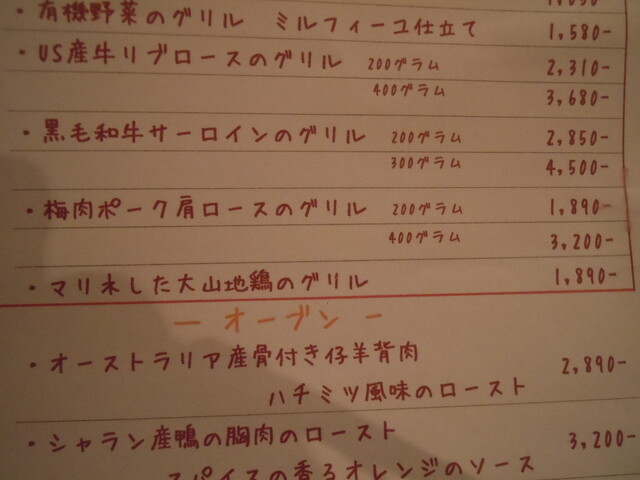 ・有機野菜のグリル ミルフィーユ仕立て 1,580-
・US産牛リブロースのグリル 200グラム 2,310-
400グラム 3,680-
・黒毛和牛サーロインのグリル 200グラム 2,850-
300グラム 4,500-
・梅肉ポーク肩ロースのグリル 200グラム 1,890-
400グラム 3,200-
・マリネした大山地鶏のグリル 1,890-
― オーブン ―
・オーストラリア産骨付き仔羊背肉 2,890-
ハチミツ風味のロースト
・シャラン産鴨の胸肉のロースト 3,200-
スパイスの香るオレンジのソース